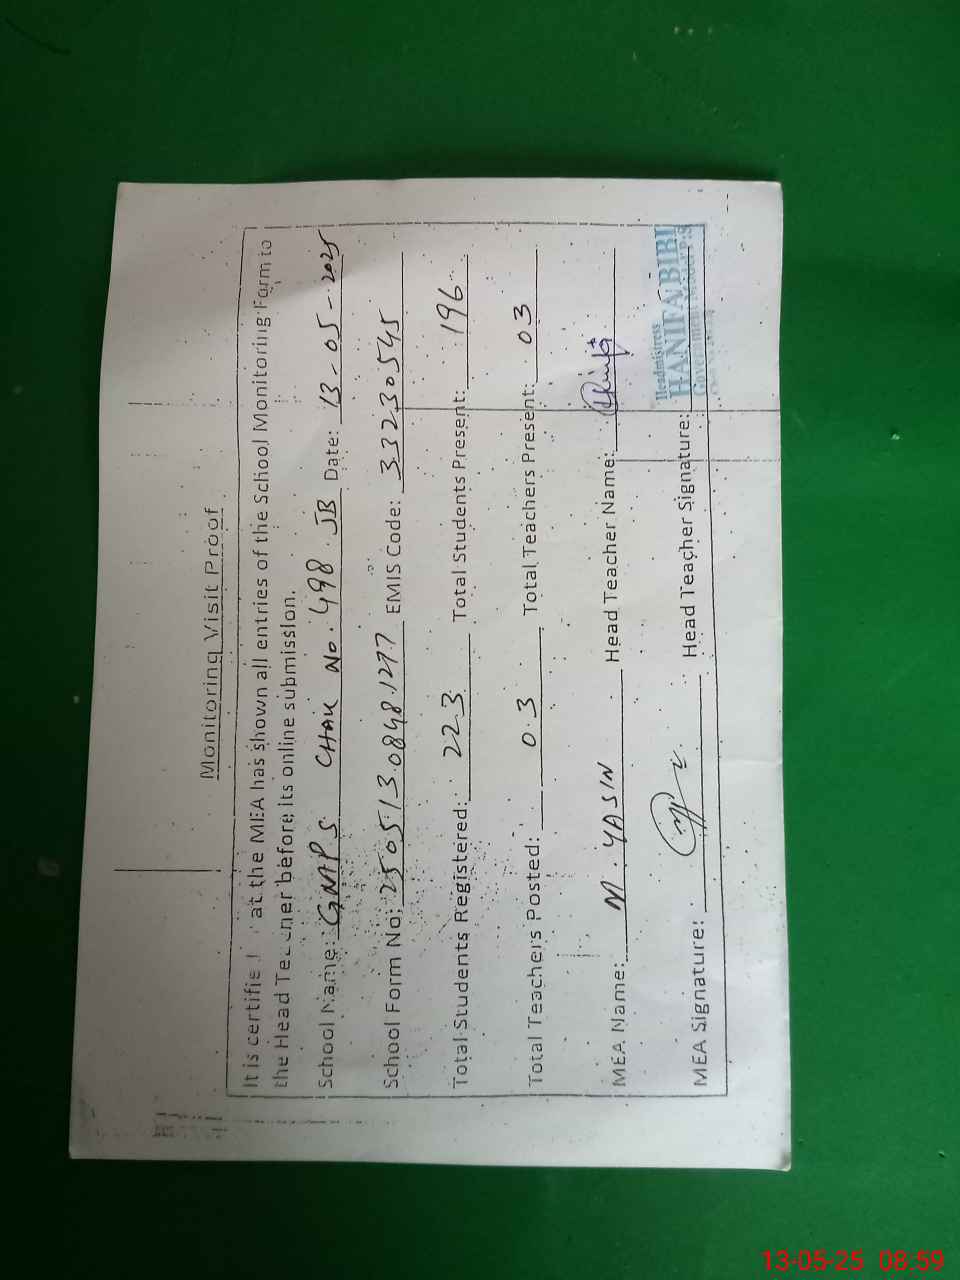 Monitoring Visit Proof
It is certifie at the MEA has shown all entries of the School Monitoring Form to
the Head Te ner before its online submission.
School Name: GMPS CHAK No. 498 JB Date: 13-05-2025
School Form No: 250513.0848.1277 EMIS Code: 33230545
Total Students Registered: 223 Total Students Present: 196
Total Teachers Posted: 03 Total Teachers Present: 03
MEA Name: M. YASIN Head Teacher Name:
MEA Signature: Head Teacher Signature:
Headmistress
HANIFA BIBI
13-05-25 08:59